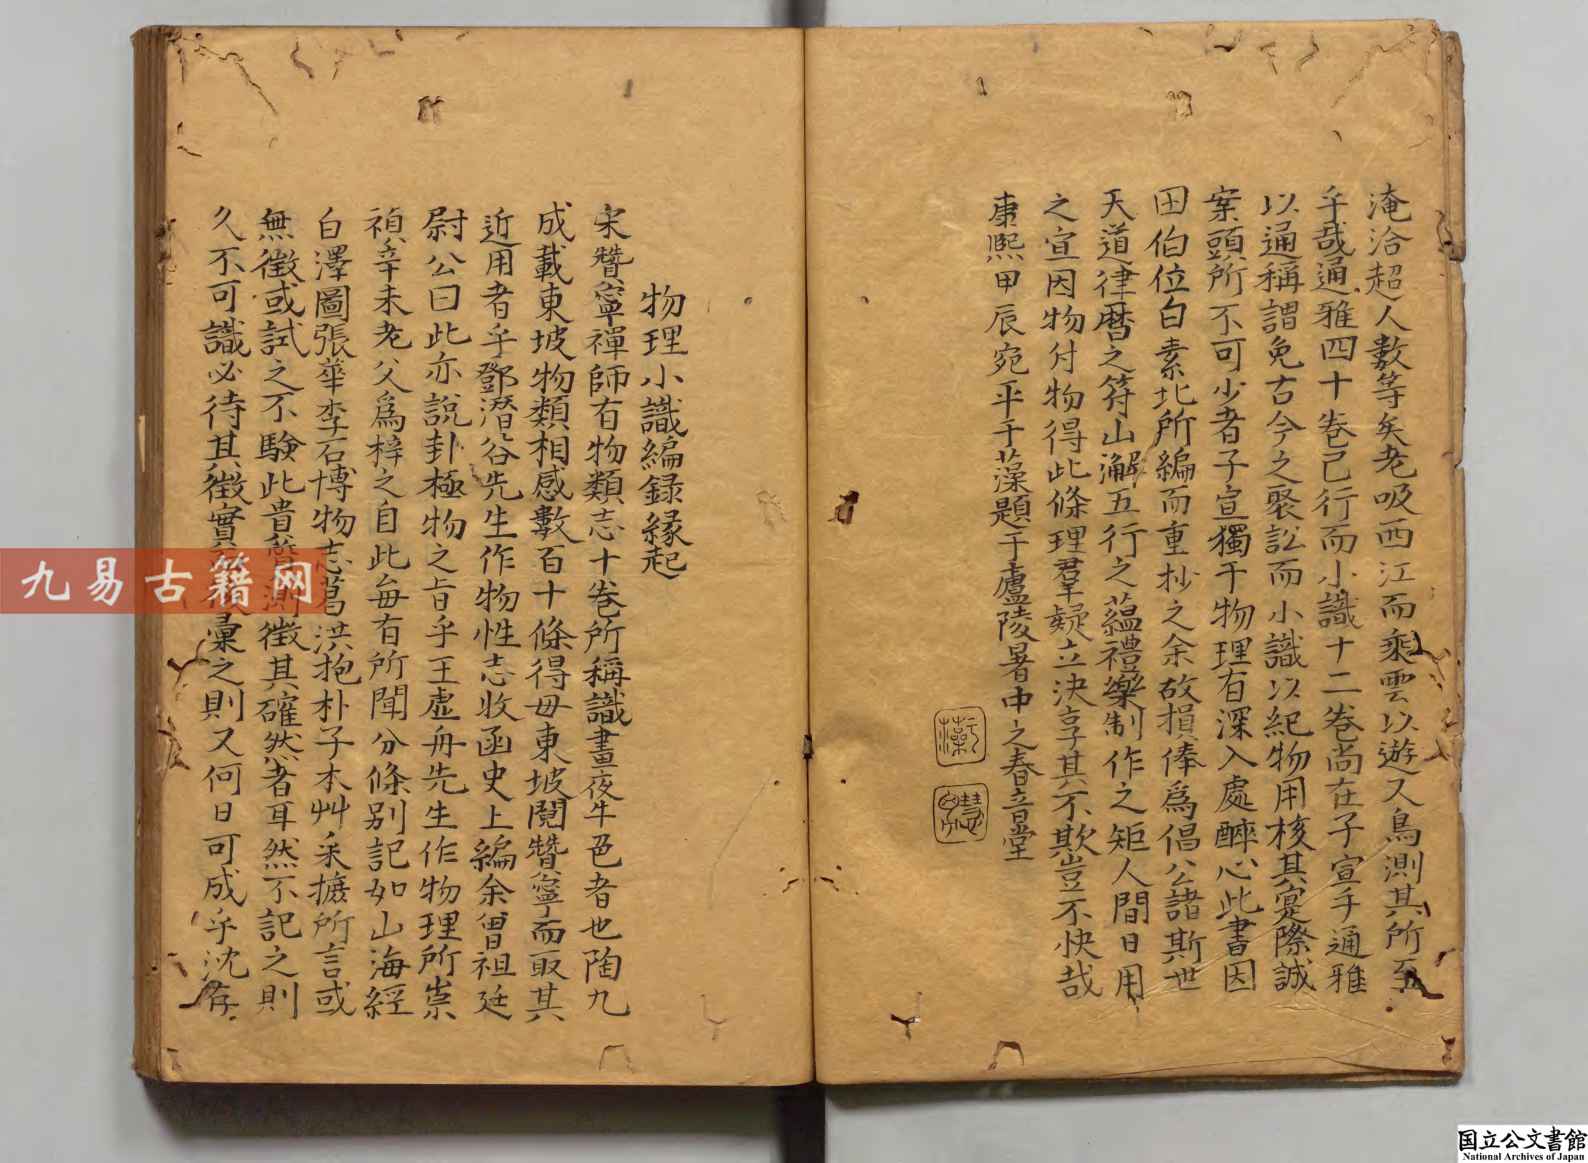 淹洽超人數等矣老吸西江而乘雲以遊又鳥測其所至
乎哉通雅四十卷已行而小識十二卷尚在子宣手通雅
以通稱謂免古今之聚訟而小識以紀物用核其寔際誠
案頭所不可少者子宣獨于物理有深入處醉心此書因
田伯位白素北所編而重抄之余故損俸爲倡公諸斯世
天道律曆之符山澥五行之蘊禮樂制作之矩人間日用
之宜因物付物得此條理羣疑立決享其不欺豈不快哉
康熙甲辰宛平于藻題于廬陵署中之春音堂
物理小識編録縁起
宋贊寧禪師有物類志十卷所稱識畫夜牛色者也陶九
成載東坡物類相感數百十條得毋東坡閱贊寧而取其
近用者乎鄧潛谷先生作物性志收函史上編余曾祖廷
尉公曰此亦說卦極物之旨乎王虛舟先生作物理所崇
禎辛未老父爲梓之自此每有所聞分條别記如山海經
白澤圖張華李石博物志葛洪抱朴子木艸采摭所言或
無徵或試之不験此貴質測徵其確然者耳然不記之則
久不可識必待其徵實而後彙之則又何日可成乎沈存
九易古籍网
国立公文書館
National Archives of Japan